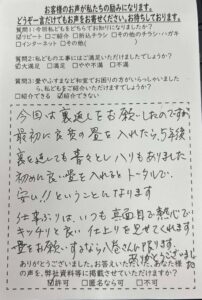 お客様のお声が私たちの励みになります。
どうぞ一言だけでもお声をお寄せください。お待ちしております。
質問1:今回私どもをどちらでお知りになりましたか?
☑リピート □ご紹介 □折込チラシ □その他のチラシ・ハガキ
□インターネット □その他(　　　)
質問2:私どもの工事にはご満足いただけましたでしょうか?
☑大満足 □満足 □やや不満 □不満
質問3:畳やふすまなど和室でお困りの方がいらっしゃいましたら、私どもをご紹介いただけますか?
□紹介できる ☑紹介できない
今回は裏返しをお願いしたのですが
最初に良質の畳を入れたら、5年後
裏を返しても青々とし ハリもありました
初めに良い畳を入れるとトータルで、
安い!!ということになります
仕事ぶりは、いつも真面目で熱心で
キッチリと良い仕上りを見せてくれます
畳をお願いするなら
ありがとうございました
ありがとうございました。お答えいただいた、あなた様
の声を、弊社資料等に掲載させていただけますか?
☑許可 □匿名なら可 □不可